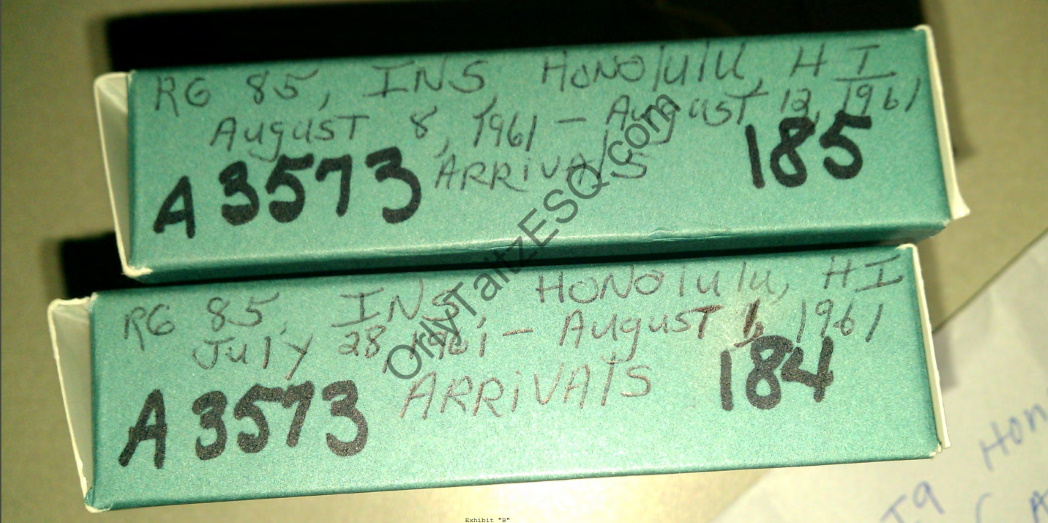 RG 85, INS, HONOlulu, HI,
August 8, 1961 – August 12, 1961
ARRIVAlS
A3573
185
RG 85, INS, HONOlulu, HI
July 28, 1961 – August 1, 1961
ARRIVAlS
A3573
184
OrlyTaitzESQ.com
Exhibit "B"